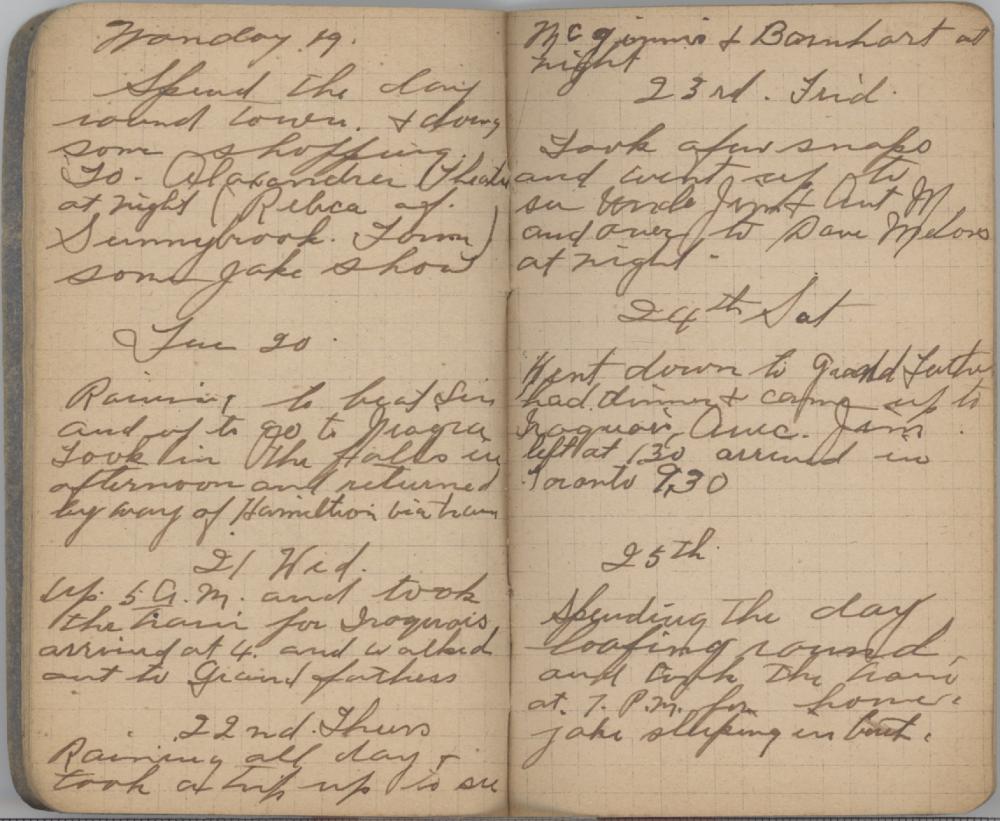 Monday 19.
Spend the day
round town. & doing
som shopping
To. Alaxandrer Theatre
at night (Rebca of.
Sunnybrook. Farm)
some jake show
Tue 20.
Raining to beat Sin
and of to go to Niagra
Took in the falls in
afternoon and returned
by way of Hamiltion via train
21 Wed.
Up. 5 A.M. and took
the train for Iroquois
arrived at 4. and walked
out to Grand fathers
22nd. Thurs
Raining all day &
took a trip up to see
McGinnis & Barnhart at
night
23rd. Frid.
Took a few snaps
and went up to
see Uncle Jim & Ant M
and over to Dave
at night.
24th Sat
Went down to Grand Father
had dinner & came up to
Iroquois, Jim.
left at 1.30 arrived in
Toronto 9,30
25th.
Spending the day
loafing round,
and took the train
at. 7. P.M. for home.
jake sleeping in